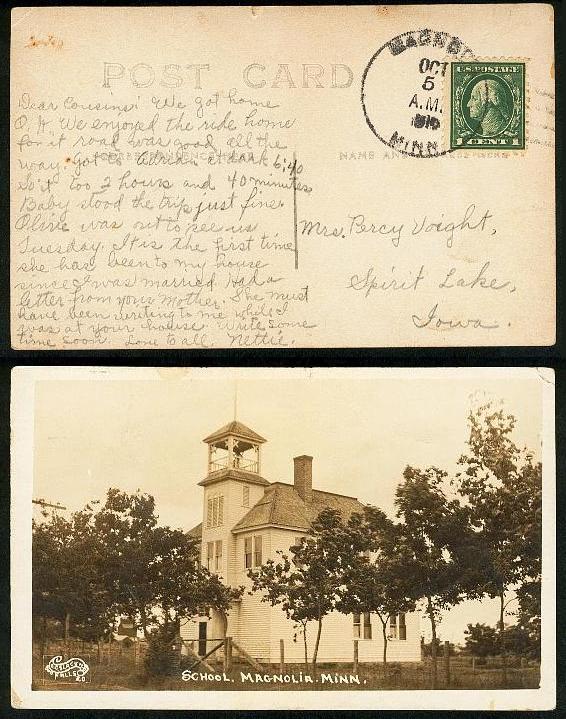 POST CARD
MAGNOLIA
OCT
5
A.M.
MINN
U.S. POSTAGE
1 CENT 1
CORRESPONDENCE HERE
NAME AND ADDRESS HERE
Dear Cousins: We got home
O.K. We enjoyed the ride home
for it road was good all the
way. Got to Adrian at 6:40
So it too 2 hours and 40 minutes
Baby stood the trip just fine.
Olive was out to see us
Tuesday. It is the first time
she has been to my house
since I was married. Had a
letter from your Mother. She must
have been writing to me while I
was at your house. Write some
time soon. Love to all, Nettie.
Mrs. Percy Voight,
Spirit Lake,
Iowa.
FALLS
SCHOOL. MAGNOLIA. MINN.